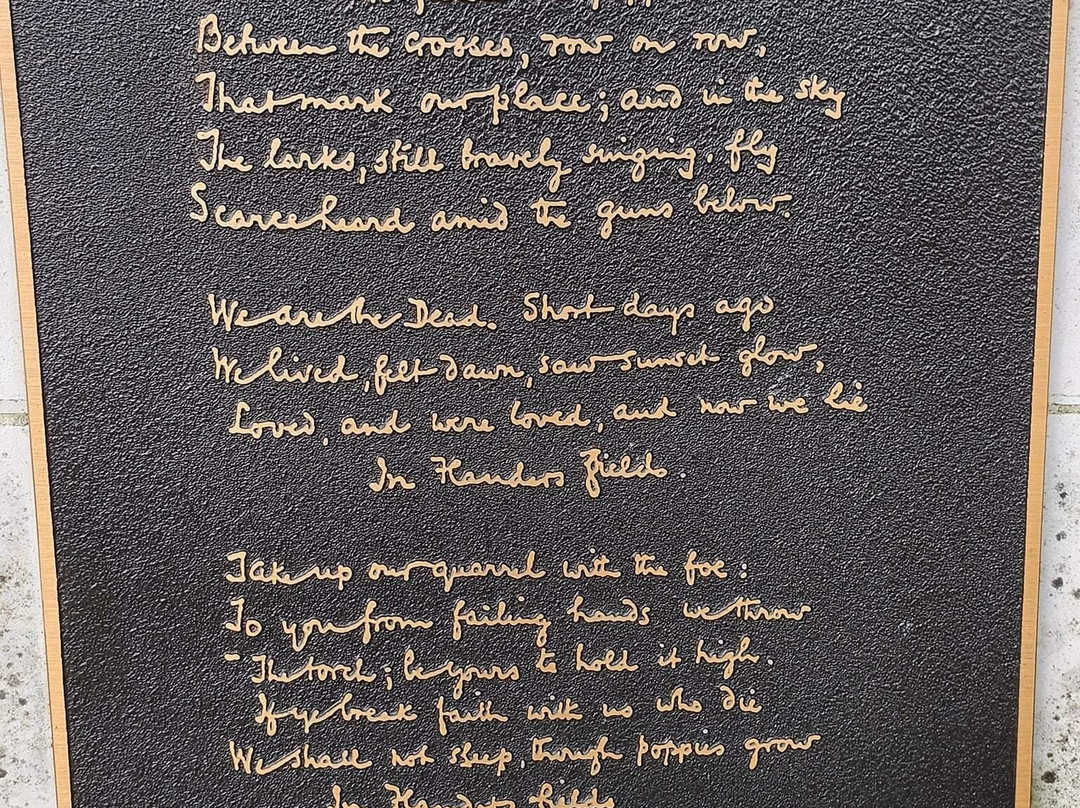 Between the crosses, row on row,
That mark our place; and in the sky
The larks, still bravely singing, fly
Scarce heard amid the guns below.
We are the Dead. Short days ago
We lived, felt dawn, saw sunset glow,
Loved, and were loved, and now we lie
In Flanders fields.
Take up our quarrel with the foe:
To you from failing hands we throw
The torch; be yours to hold it high.
If ye break faith with us who die
We shall not sleep, though poppies grow
In Flanders fields